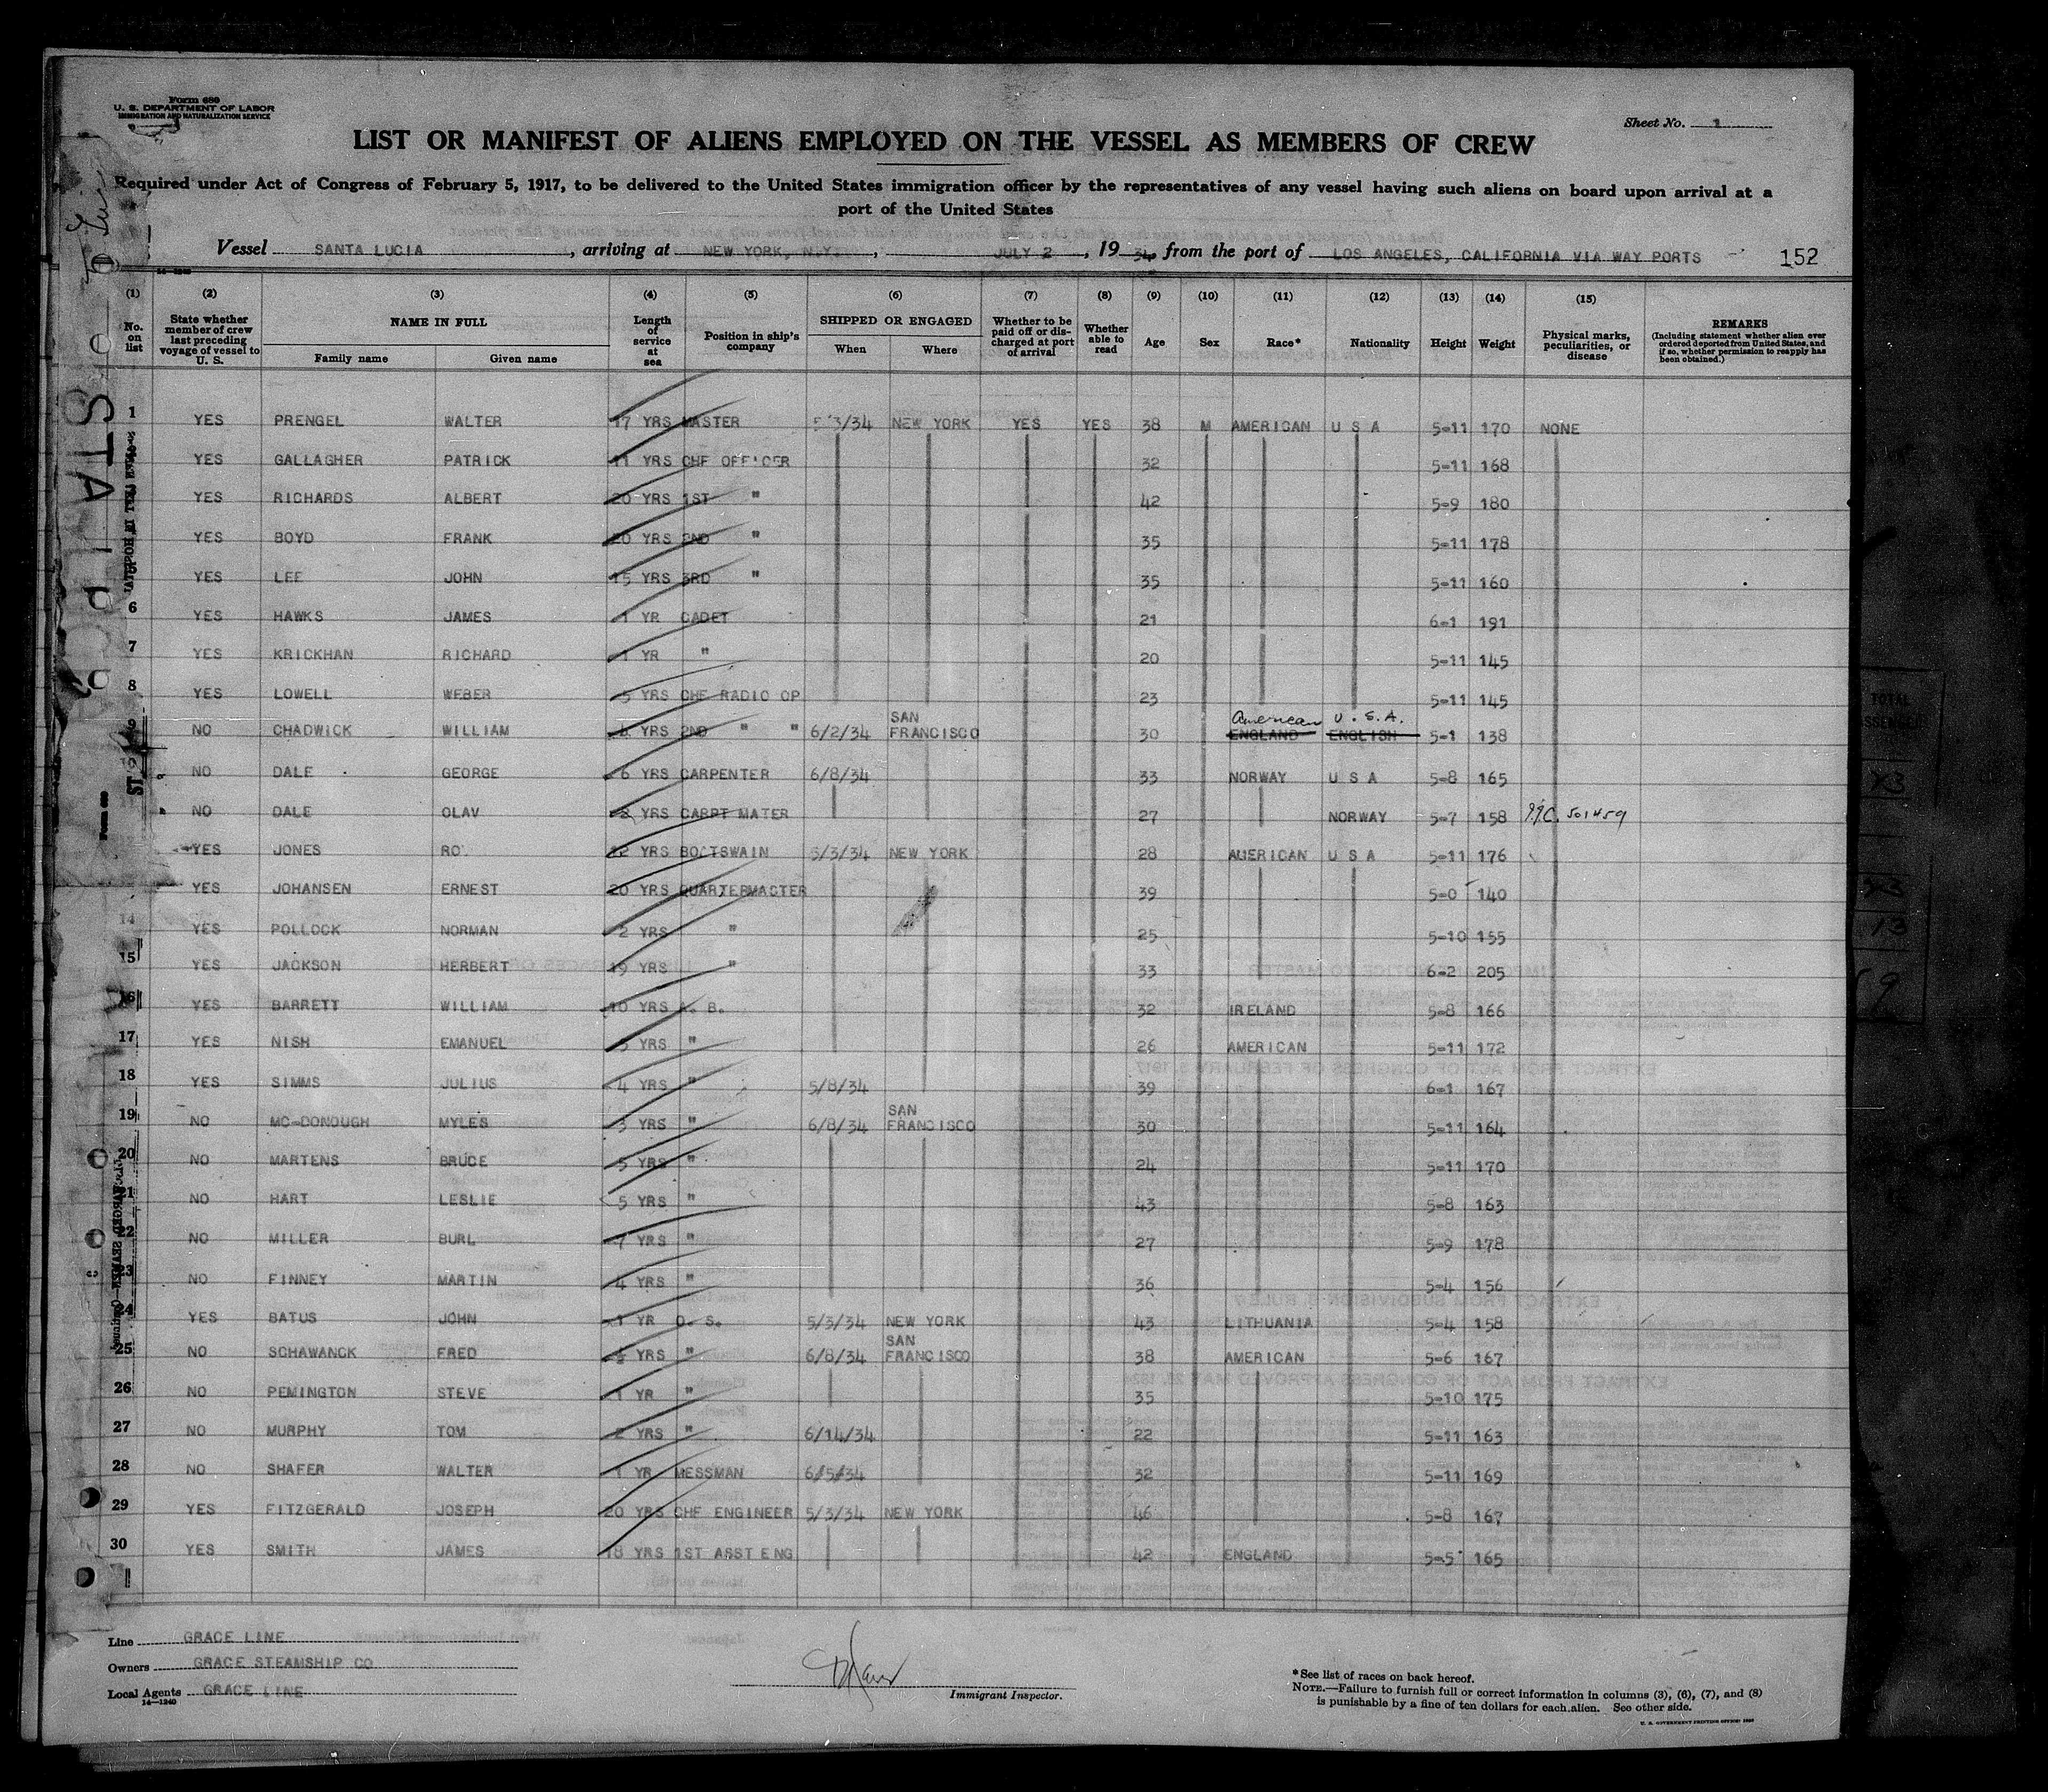 Form 689
U. S. DEPARTMENT OF LABOR
IMMIGRATION AND NATURALIZATION SERVICE
Sheet No. 1
LIST OR MANIFEST OF ALIENS EMPLOYED ON THE VESSEL AS MEMBERS OF CREW
Required under Act of Congress of February 5, 1917, to be delivered to the United States immigration officer by the representatives of any vessel having such aliens on board upon arrival at a
port of the United States
Vessel SANTA LUCIA, arriving at NEW YORK, N.Y., JULY 2, 1934, from the port of LOS ANGELES, CALIFORNIA VIA WAY PORTS 152
(1) (2) (3) (4) (5) (6) (7) (8) (9) (10) (11) (12) (13) (14) (15)
No. on list
State whether member of crew last preceding voyage of vessel to U. S.
NAME IN FULL
Family name
Given name
Length of service at sea
Position in ship's company
SHIPPED OR ENGAGED
When
Where
Whether to be paid off or discharged at port of arrival
Whether able to read
Age
Sex
Race*
Nationality
Height
Weight
Physical marks, peculiarities, or disease
REMARKS
(Including statement whether alien ever ordered deported from United States, and if so, whether permission to reapply has been obtained.)
1 YES PRENGEL WALTER 17 YRS MASTER 5/3/34 NEW YORK YES YES 38 M AMERICAN U S A 5-11 170 NONE
YES GALLAGHER PATRICK 11 YRS CHF OFFICER 32 5-11 168
YES RICHARDS ALBERT 20 YRS 1ST " 42 5-9 180
YES BOYD FRANK 20 YRS 2ND " 35 5-11 178
YES LEE JOHN 15 YRS 3RD " 35 5-11 160
6 YES HAWKS JAMES 1 YR CADET 21 6-1 191
7 YES KRICKHAN RICHARD 1 YR " 20 5-11 145
8 YES LOWELL WEBER 5 YRS CHF RADIO OP 23 5-11 145
American U.S.A.
9 NO CHADWICK WILLIAM YRS 2ND " " 6/2/34 SAN FRANCISCO 30 ENGLAND ENGLISH 5-1 138
NO DALE GEORGE 6 YRS CARPENTER 6/8/34 33 NORWAY U S A 5-8 165
NO DALE OLAV YRS CARPT MATER 27 NORWAY 5-7 158 501459
YES JONES RO YRS BOATSWAIN 5/3/34 NEW YORK 28 AMERICAN U S A 5-11 176
YES JOHANSEN ERNEST 20 YRS QUARTERMASTER 39 5-0 140
14 YES POLLOCK NORMAN 2 YRS " 25 5-10 155
15 YES JACKSON HERBERT 19 YRS " 33 6-2 205
16 YES BARRETT WILLIAM 10 YRS A. B. 32 IRELAND 5-8 166
17 YES NISH EMANUEL 5 YRS " 26 AMERICAN 5-11 172
18 YES SIMMS JULIUS 4 YRS " 5/8/34 39 6-1 167
19 NO MC-DONOUGH MYLES 3 YRS " 6/8/34 SAN FRANCISCO 30 5-11 164
20 NO MARTENS BRUCE 5 YRS " 24 5-11 170
21 NO HART LESLIE 5 YRS " 43 5-8 163
22 NO MILLER BURL 7 YRS " 27 5-9 178
23 NO FINNEY MARTIN 4 YRS " 36 5-4 156
24 YES BATUS JOHN 1 YR O. S. 5/3/34 NEW YORK 43 LITHUANIA 5-4 158
25 NO SCHAWANCK FRED YRS " 6/8/34 SAN FRANCISCO 38 AMERICAN 5-6 167
26 NO PEMINGTON STEVE 1 YR " 35 5-10 175
27 NO MURPHY TOM 2 YRS " 6/14/34 22 5-11 163
28 NO SHAFER WALTER 1 YR MESSMAN 6/5/34 32 5-11 169
29 YES FITZGERALD JOSEPH 20 YRS CHF ENGINEER 5/3/34 NEW YORK 46 5-8 167
30 YES SMITH JAMES 18 YRS 1ST ASST ENG 42 ENGLAND 5-5 165
Line GRACE LINE
Owners GRACE STEAMSHIP CO
Local Agents GRACE LINE
14—1240
Immigrant Inspector.
*See list of races on back hereof.
NOTE.—Failure to furnish full or correct information in columns (3), (6), (7), and (8)
is punishable by a fine of ten dollars for each alien. See other side.
U. S. GOVERNMENT PRINTING OFFICE